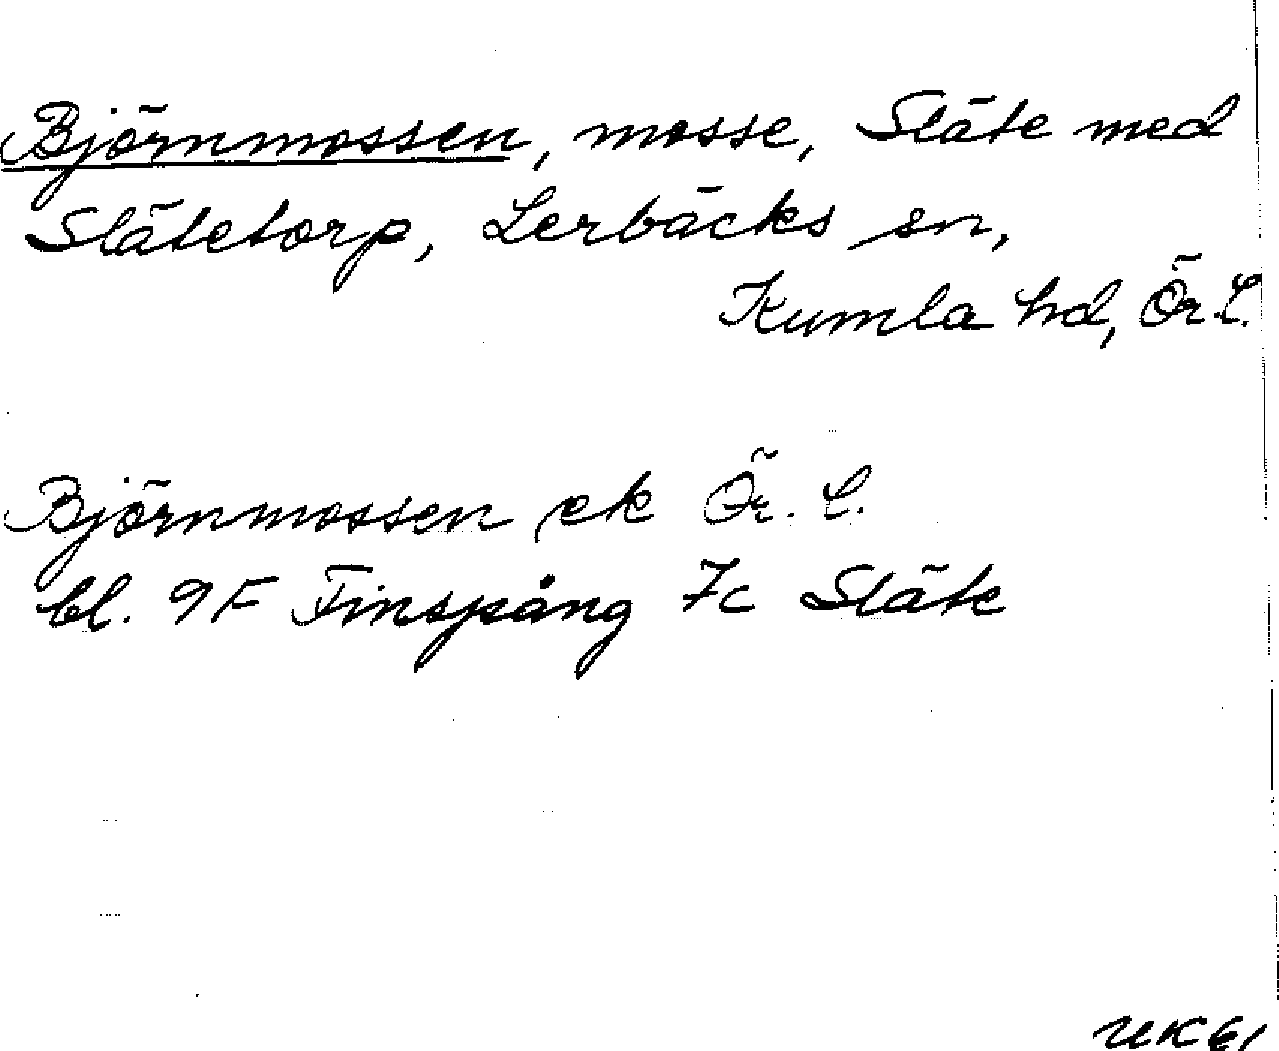 Björnmossen, mosse, Släte med
Slätetorp, Lerbäcks sn,
Kumla hd, Ör L.
Björnmossen ek Ör. L.
bl. 9F Finspång 7c Släte